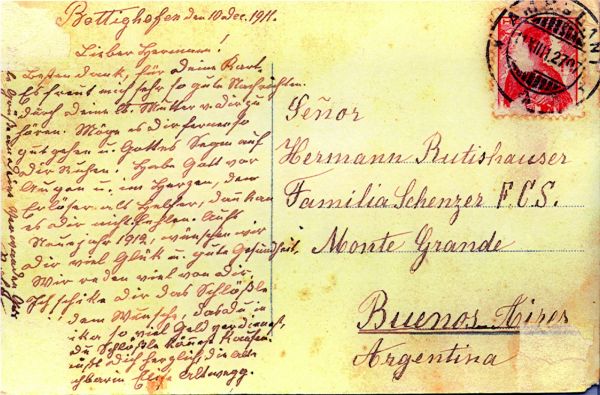 Bottighofen den 10 dec. 1911.
Lieber Hermann!
Besten Dank, für deine Kart.
Es freut mich sehr so gute Nachrichten
durch deine lb. Mutter v. dir zu
hören. Möge es dir fernerhin
gut gehen u. Gottes Segen auf
dir Ruhen. Habe Gott vor
Augen u. im Herzen, den
Erlöser als Helfer, dann kan
es dir nicht fehlen. Aufs
Neujahr 1912, wünschen wir
Dir viel Glük u. gute Gesundheit,
Wir reden viel von dir.
Ich schike dir das Schlößle
dem Wunsche, das du in
so viel Geld verdienest,
du Schlößle kannst kaufen.
dich herzlich die alte
Elise Altwegg.
Señor
Hermann Rutishauser
Familia Schenzer F.C.S.
Monte Grande
Buenos-Aires
Argentina